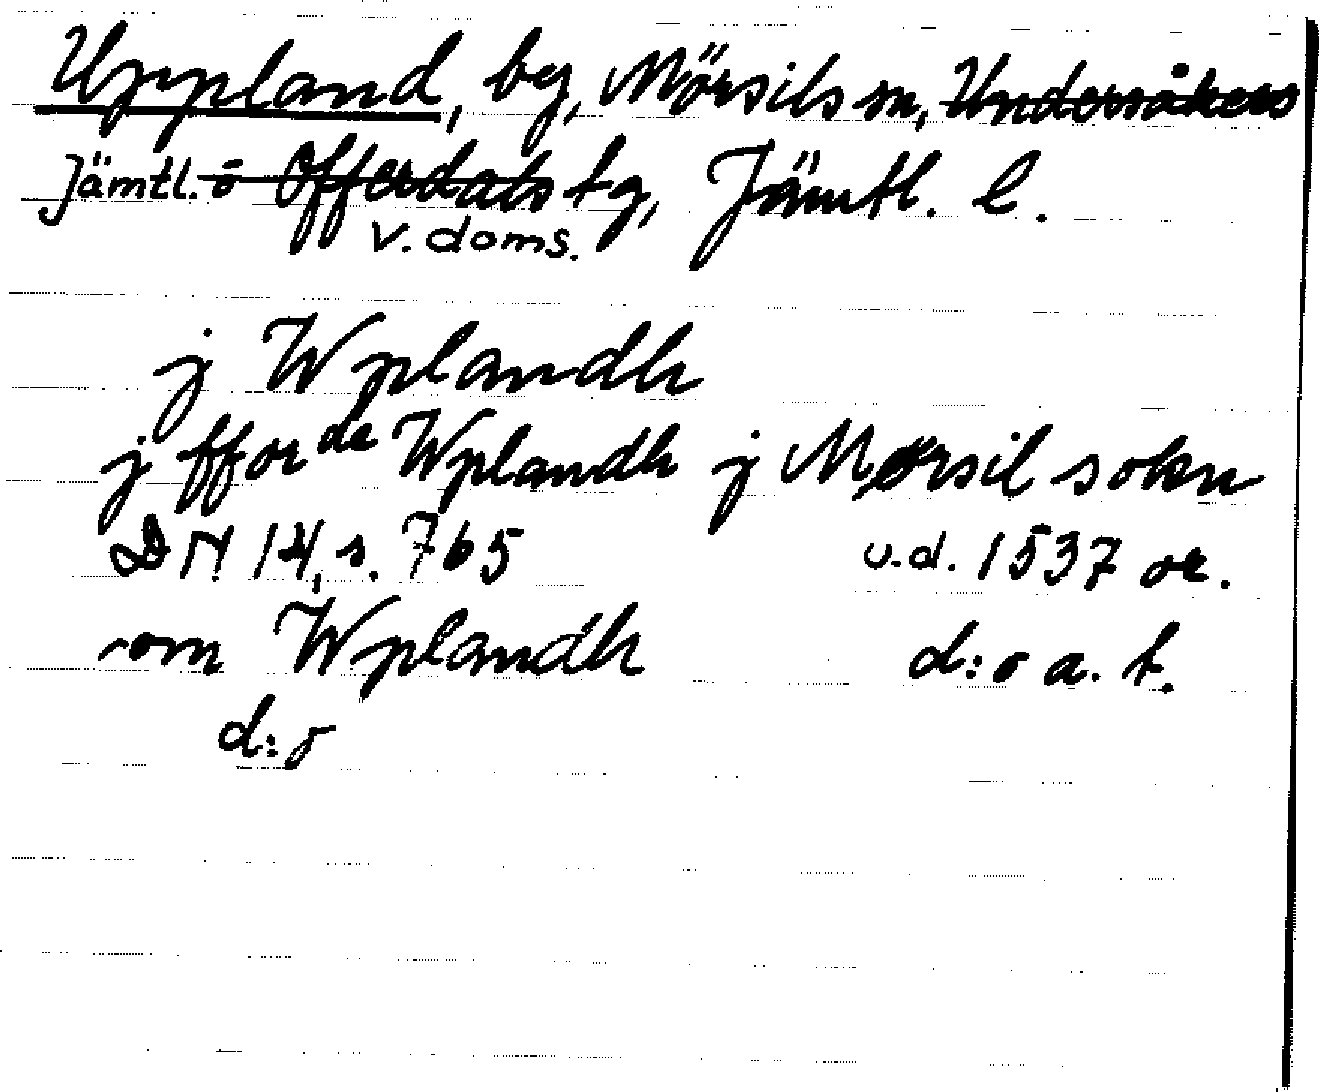 Uppland, by, Mörsils sn, Undersåkers
Jämtl. o Offerdals tg, Jämtl. l.
V. doms.
j Wplandh
j fforde Wplandh j Mørsil sokn
DN 14, s. 765 u.d. 1537 or.
om Wplandh d:o a. t.
d:o